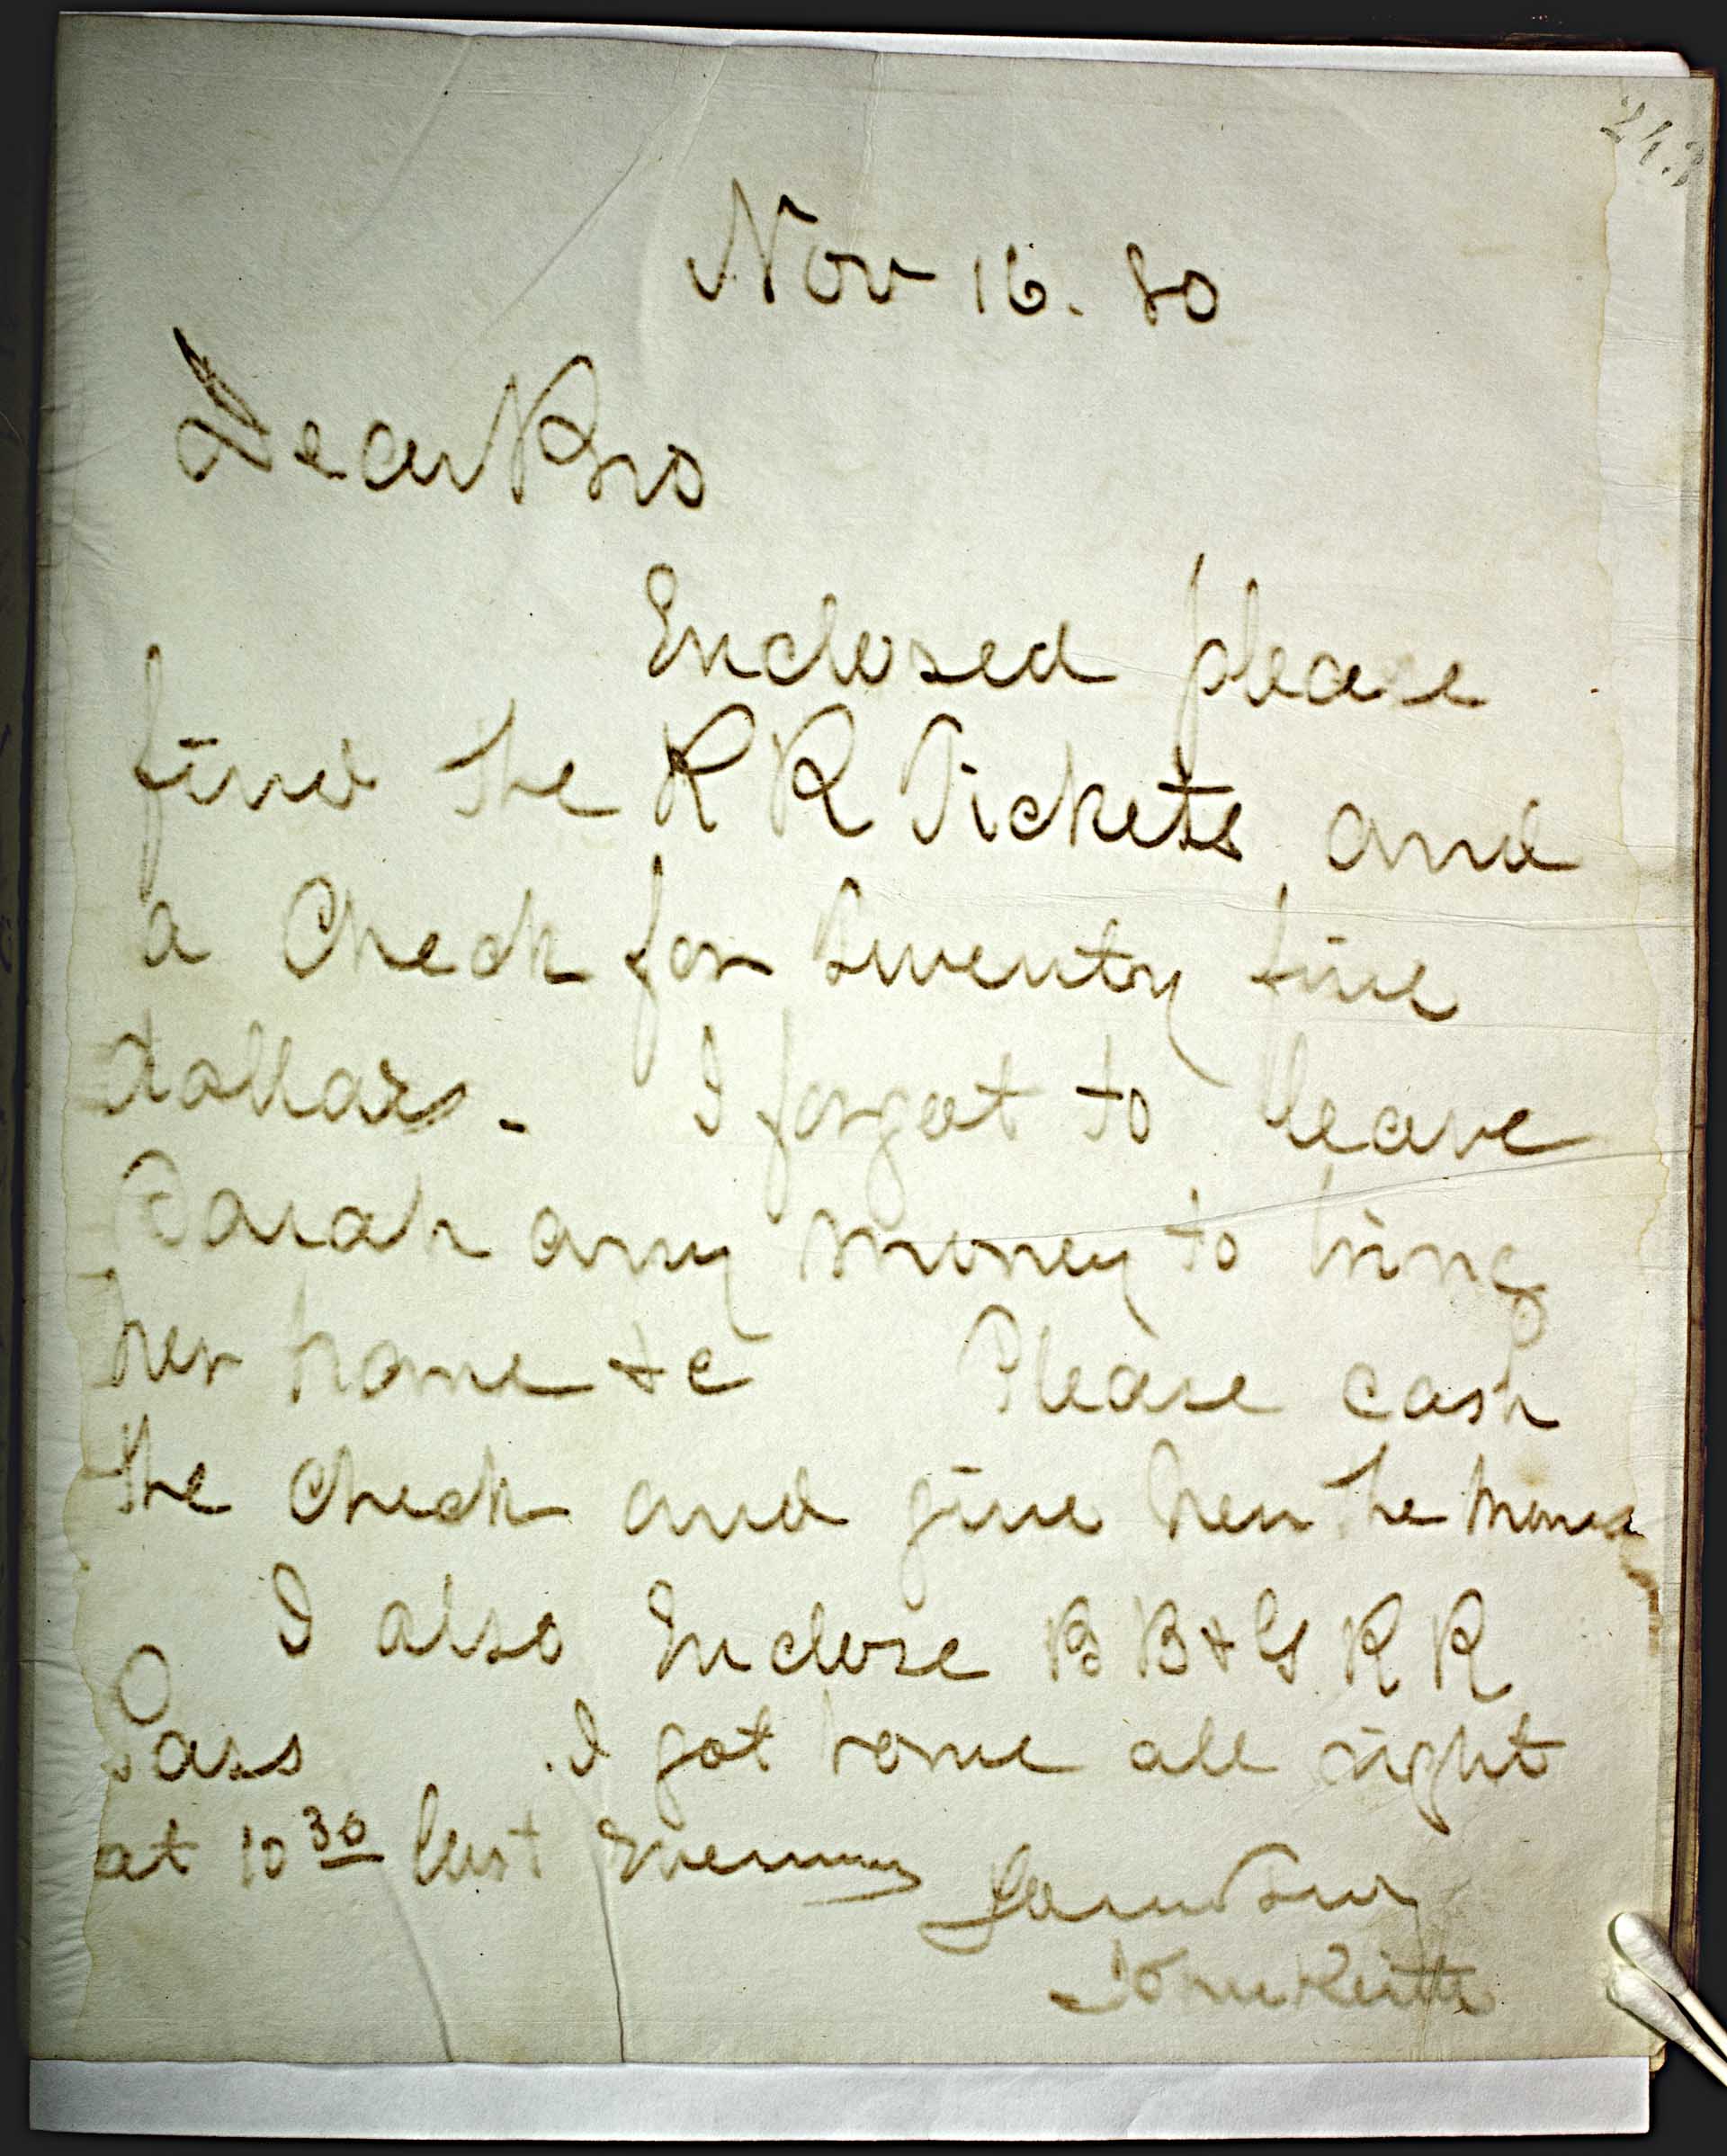 243
Nov 16. 80
Dear Bro
Enclosed please
find the R R Tickets and
a Check for twenty five
dollars. I forgot to leave
Sarah any money to bring
her home &c Please cash
the check and give her the money
I also Enclose B B & G R R
Pass I got home all right
at 10 30 last Evening
John Keith